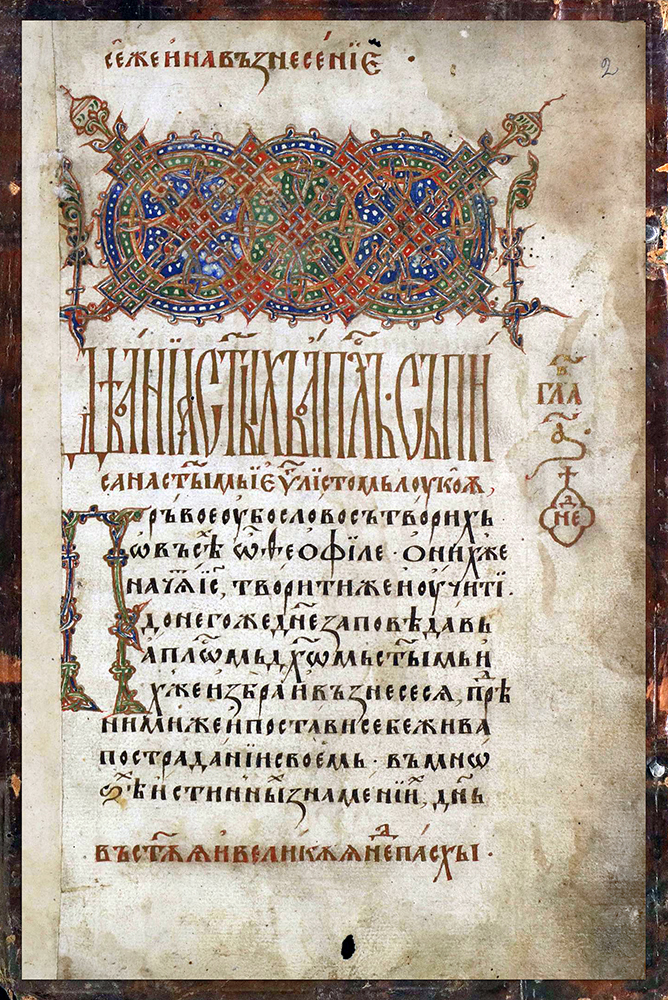 се же и на възнесенїе ·
2
Дѣанїа ст҃ыхъ ап҃лъ · съпи
сана ст҃ымь іеѵ҃лїстомь лоукоѫ,
Пръвое оубо слово сътворихь
ѡ въсѣ҃ ѡ҃ ѳеофїле · о нихже
нача҃ їс҃, творити же и оучити ·
до него же дн҃е заповѣдавь
апл҃ѡмь дх҃ѡмь ст҃ымь и
хже избра и възнесесѧ, прѣⷣ
ними же и постави себе жива
по страдании своемь · въ мнѡ
ѕѣ҃ истинны҃ знаменїи҃, дн҃ь
въ ст҃ѫѧ и великѫѧ неⷣ пасхы ·
гла
а҃
неⷣ